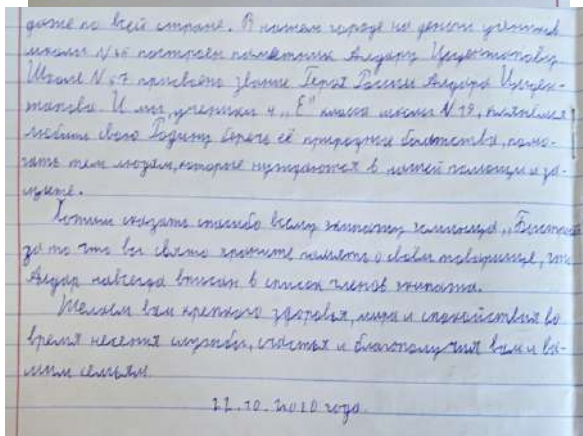 даже по всей стране. В нашем городе на деньги учеников
школы N 56 построен памятник Алдару Цыденжапову.
Школе N 57 присвоено звание Героя России Алдара Цыден-
жапова. И мы, ученики 4 „Е" класса школы N 19, клянёмся
любить свою Родину беречь её природные богатства, помо-
гать тем людям, которые нуждаются в нашей помощи и за-
щите.
Хотим сказать спасибо всему экипажу эсминца „Быстрый
за то что вы свято храните память о своём товарище, что
Алдар навсегда вписан в список членов экипажа.
Желаем вам крепкого здоровья, мира и спокойствия во
время несения службы, счастья и благополучия вам и ва-
шим семьям.
22.10.2020 года.